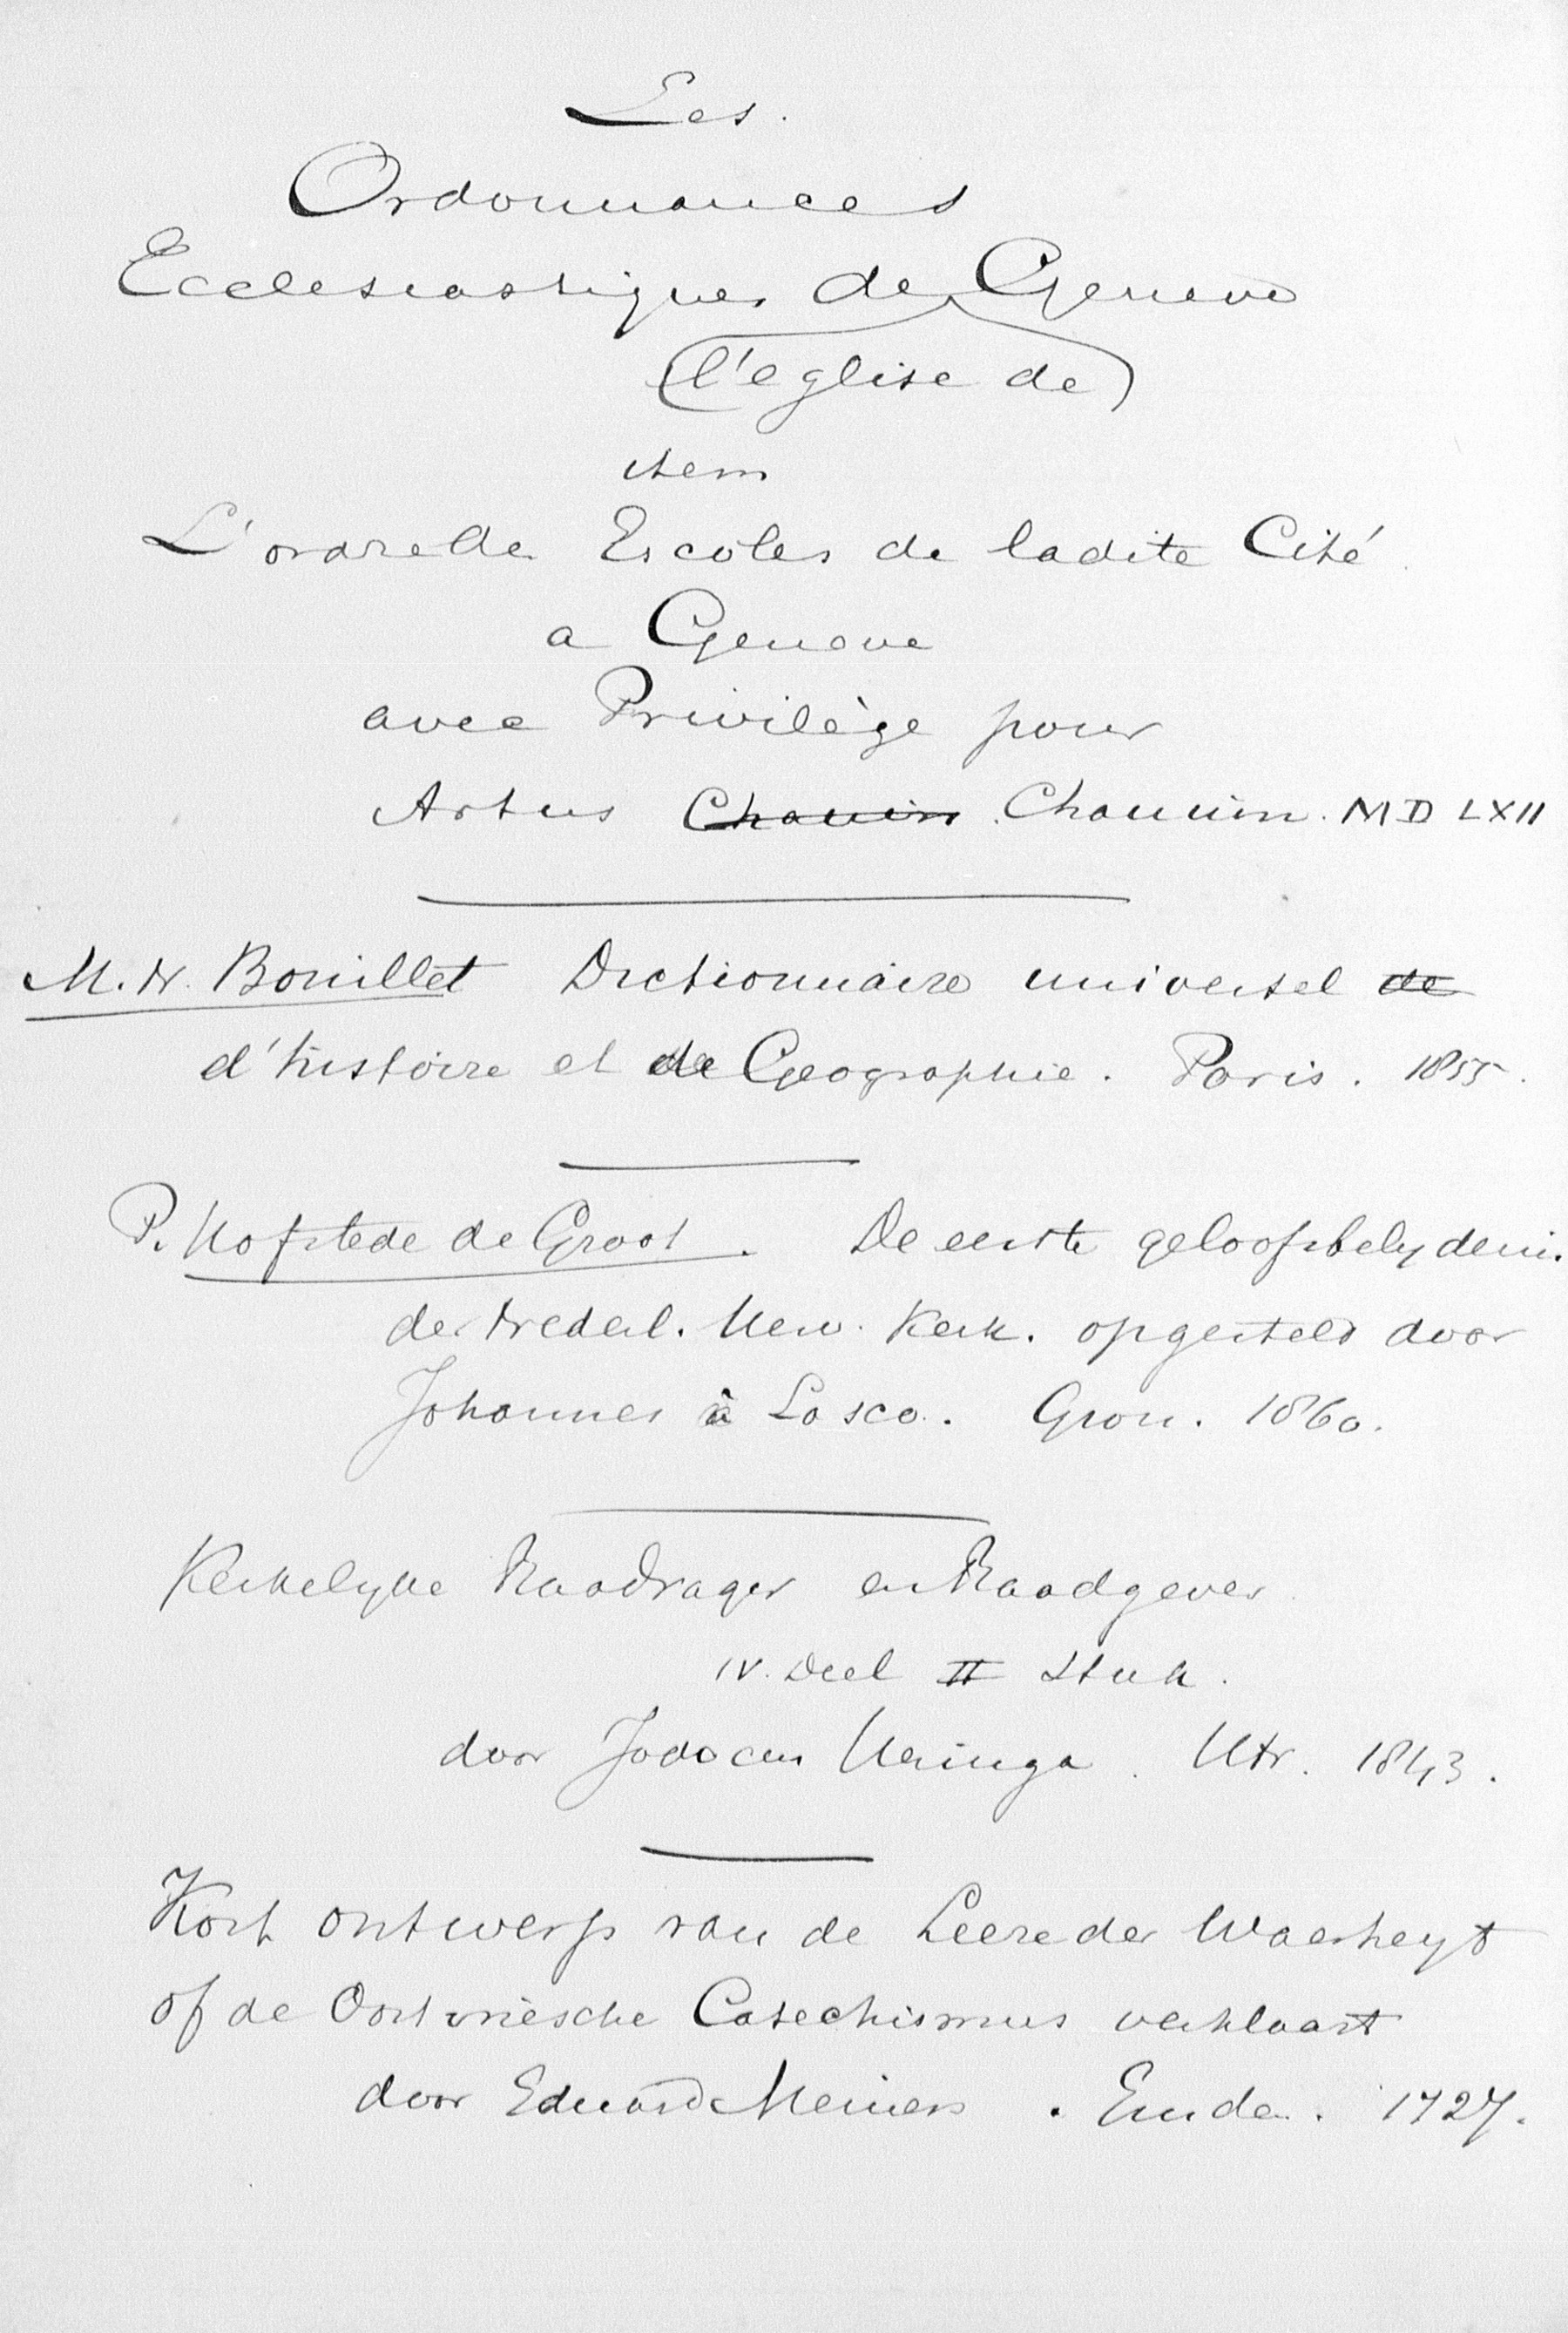 Les.
Ordonnances
Ecclesiastiques de Geneve
(l'eglise de)
item
L'ordre des Escoles de ladite Cité
a Geneve
avec Privilège pour
Artus Chauin Chauuin. MD LXII
M. N. Bouillet Dictionnaire universel de
d'histoire et de Geographie. Paris. 1855.
P. Hofstede de Groot. De eerste geloofsbelydenis
der Nederl. Herv. Kerk. opgesteld door
Johannes à Lasco. Gron. 1860.
Kerkelyke Raadvrager en Raadgever
IV. Deel II Stuk.
door Jodocus Heringa. Utr. 1843.
Kort ontwerp van de Leere der Waerheyt
of de Oostvriesche Catechismus verklaart
door Eduard Meiners. Emden. 1727.